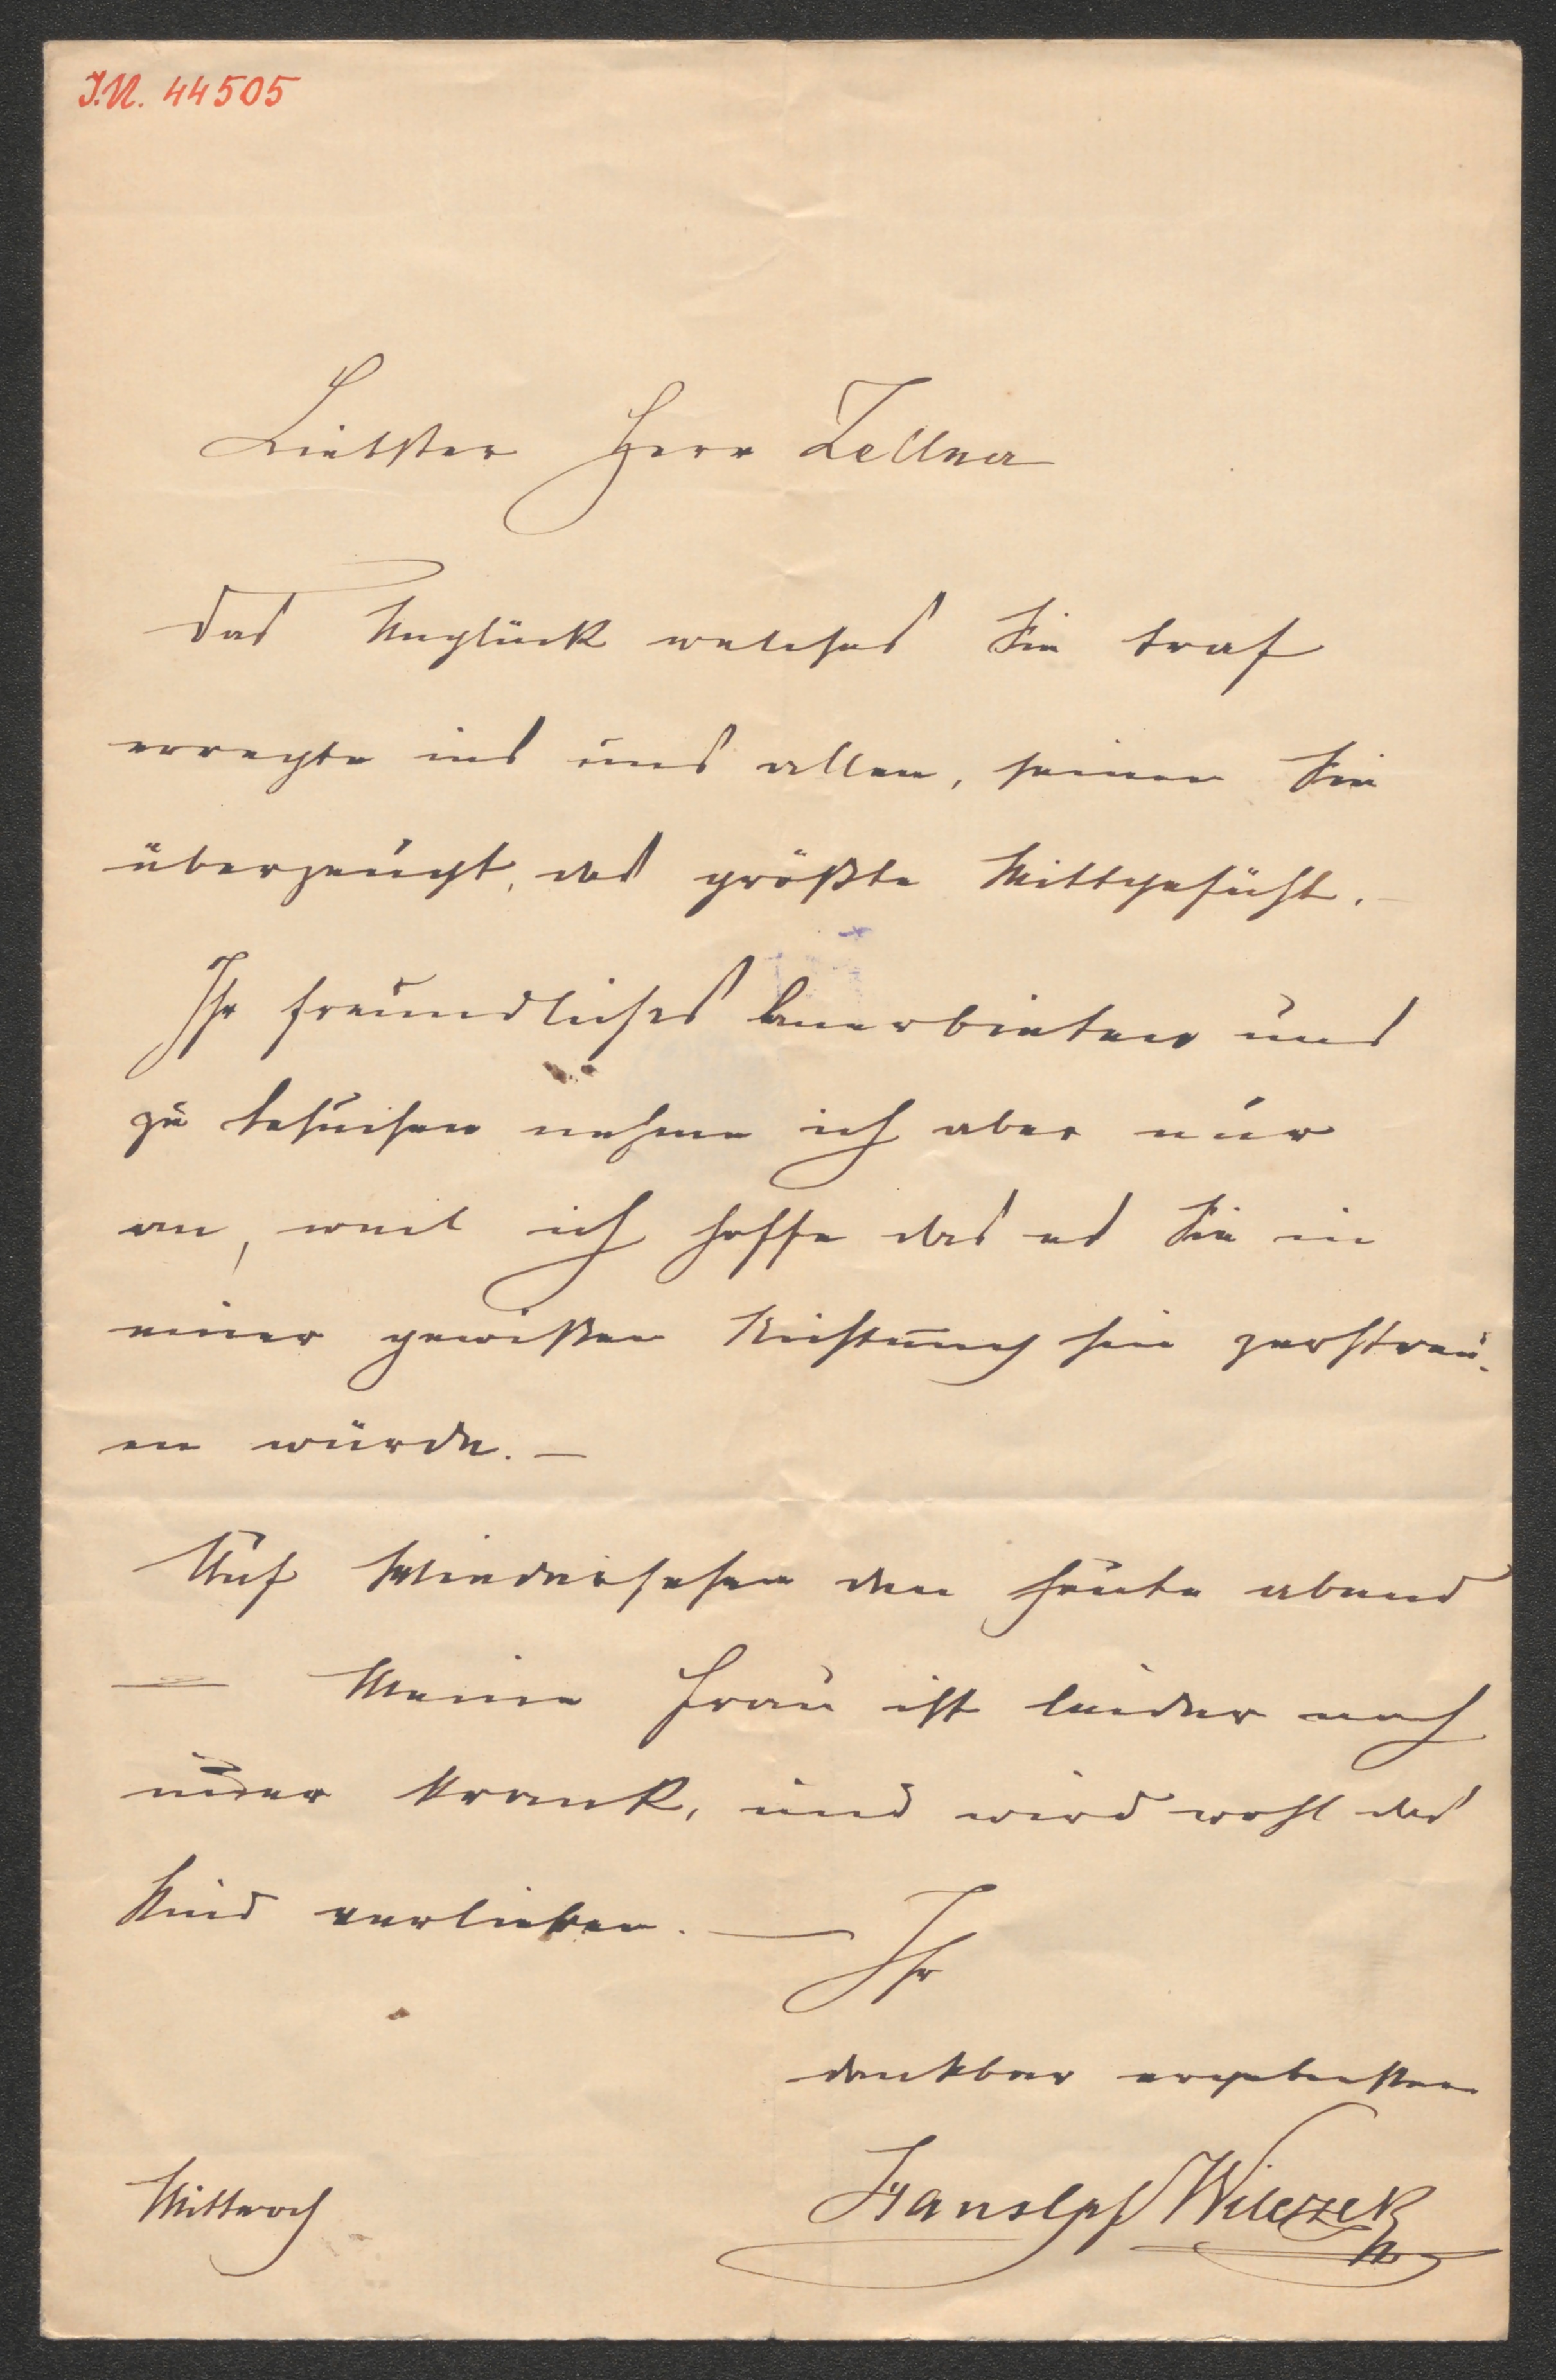 I.N. 44505
Liebster Herr Zellner
das Unglück welches Sie traf
erregte in uns allen, seien Sie
überzeugt, das größte Mittgefühl. -
Ihr freundliches Anerbieten uns
zu besuchen nehme ich aber nur
an, weil ich hoffe das es Sie in
einer gewißen Richtung hin zerstreu-
en würde. —
Auf Wiedersehen den heute abend
— Meine Frau ist leider noch
krank, und wird wohl das
Kind verlieren. — Ihr
dankbar ergebenster
Hans Wilczek
Mittwoch